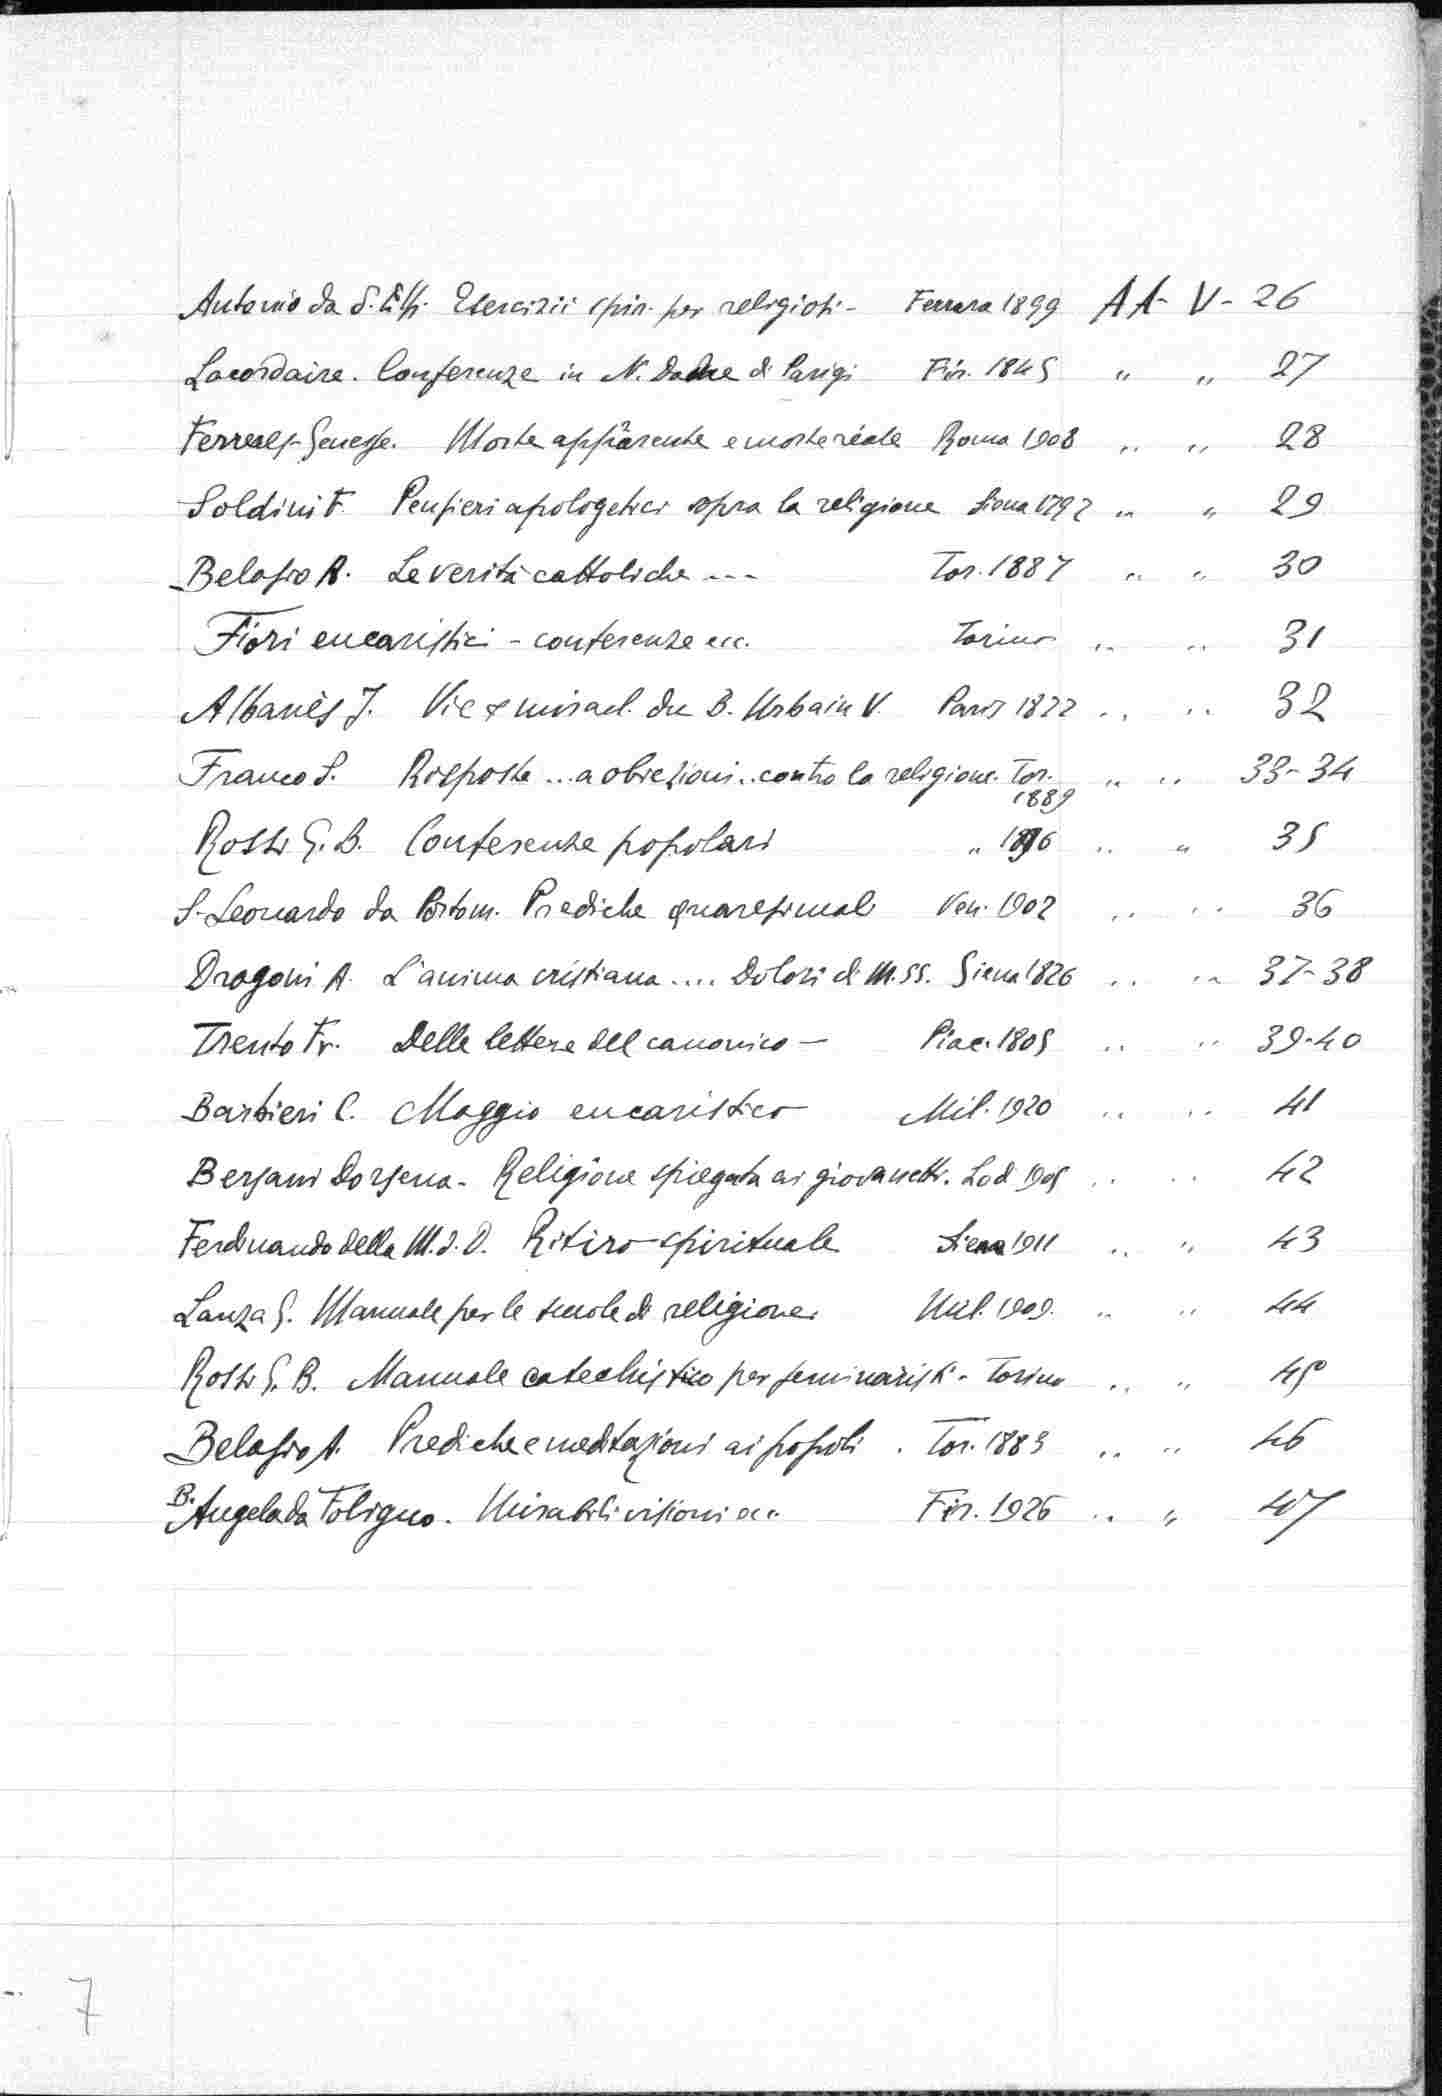 Antonio da S. Esercizii spir. per religiosi - Ferrara 1899 AA - V - 26
Lacordaire. Conferenze in N. Dame di Parigi Fir. 1845 " " 27
Ferreres-Genesse. Morte apparente e morte reale Roma 1908 " " 28
Soldini F. Pensieri apologetici sopra la religione Siena 1792 " " 29
Belasio A. Le verità cattoliche ... Tor. 1887 " " 30
Fiori eucaristici - conferenze ecc. Torino " " 31
Albanès J. Vie e miracl. du B. Urbain V. Paris 1822 " " 32
Franco S. Risposte ... a obiezioni .. contro la religione. Tor. " " 33-34
1889
Rossi G. B. Conferenze popolari " 1896 " " 35
S. Leonardo da Portom. Prediche quaresimali Ven. 1902 " " 36
Dragoni A. L'anima cristiana .... Dolori di M. SS. Siena 1826 " " 37-38
Trento Fr. Delle lettere del canonico - Piac. 1805 " " 39-40
Barbieri C. Maggio eucaristico Mil. 1920 " " 41
Bersani Dorsena - Religione spiegata ai giovanetti. Lodi 1905 " " 42
Ferdinando della M. d. D. Ritiro spirituale Siena 1911 " " 43
Lanza G. Manuale per le scuole di religione Mil. 1909. " " 44
Rossi G. B. Manuale catechistico per seminaristi - Torino " " 45
Belasio A. Prediche e meditazioni ai popoli . Tor. 1883 " " 46
B. Angela da Foligno. Mirabili visioni ecc. Fir. 1926 " " 47
7